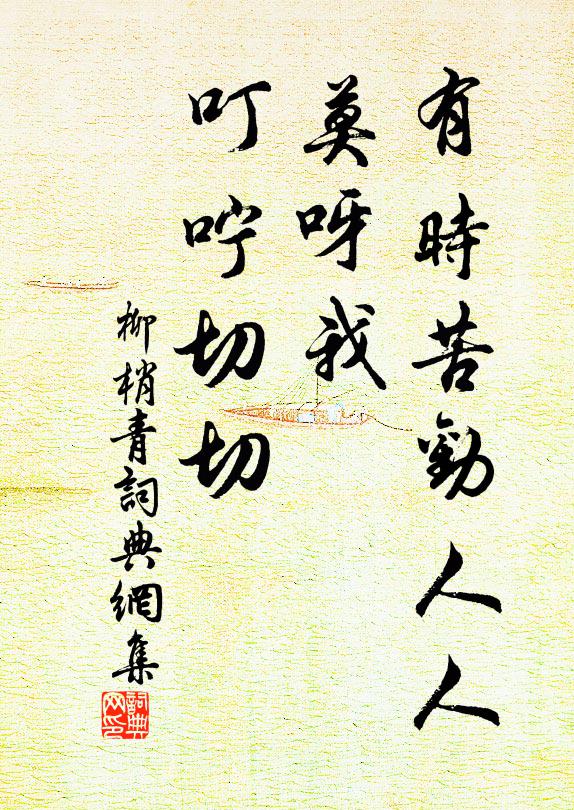 有時苦勸人人
莫呀我
叮咛切切
柳梢青詞典網集
詞典网印